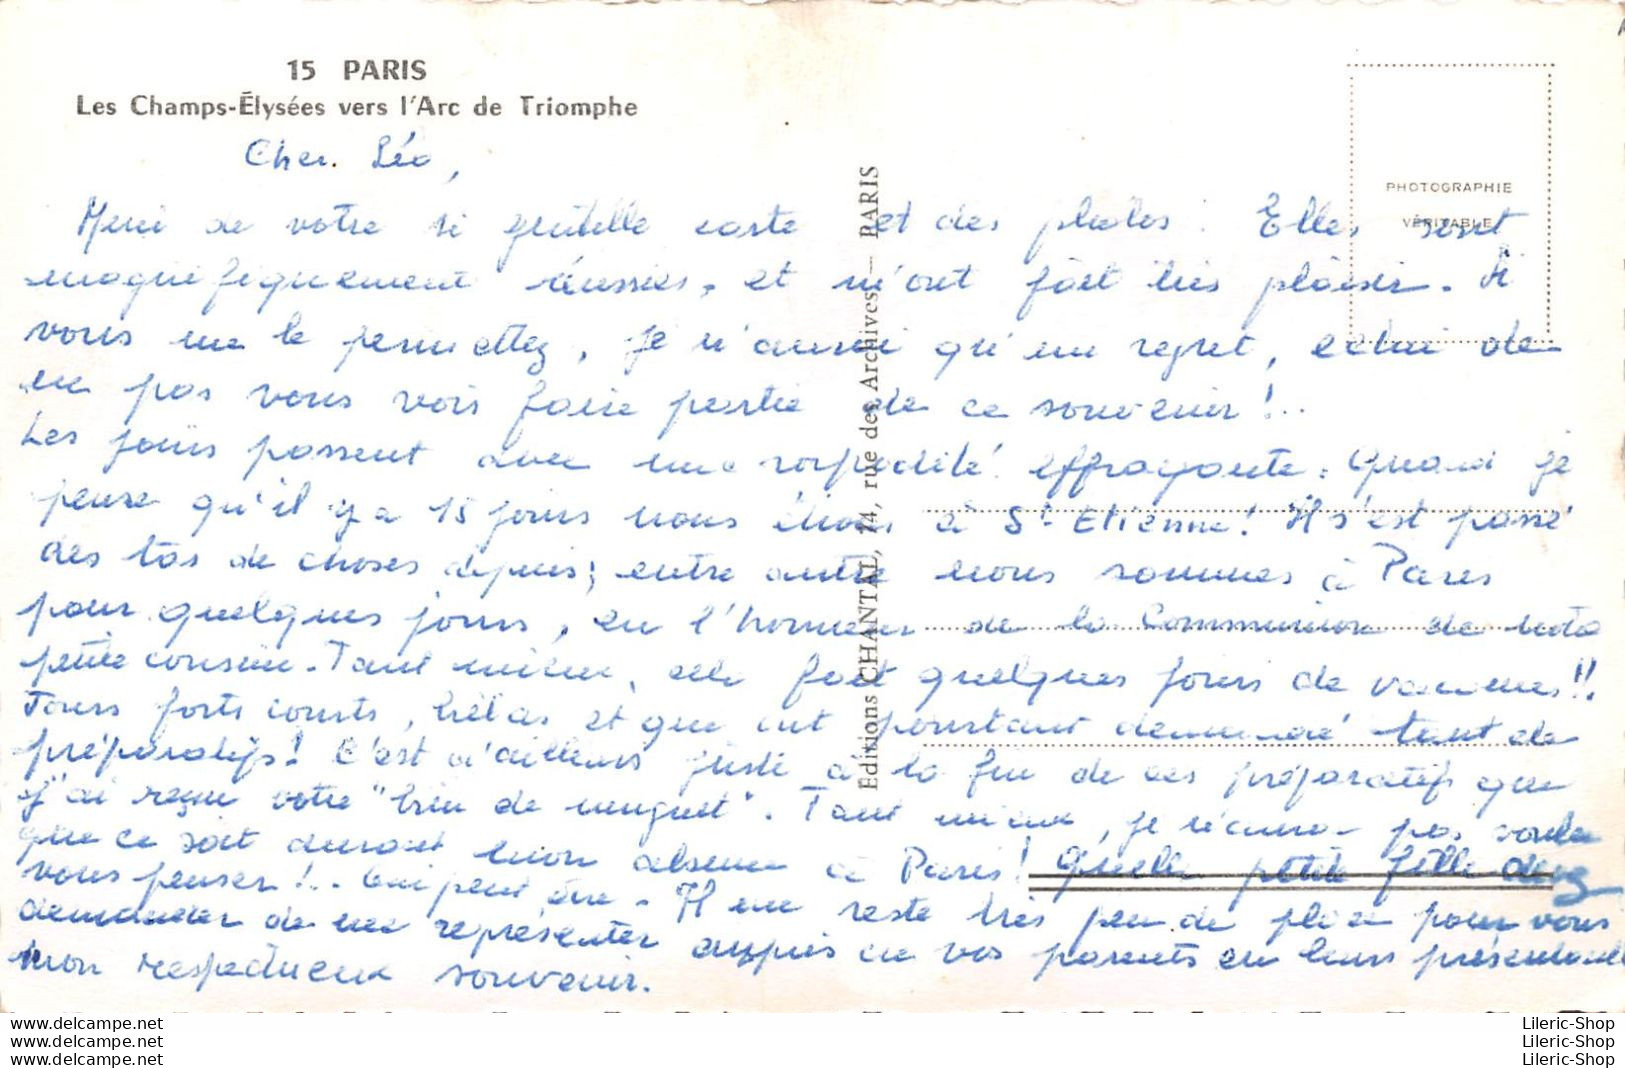 15 PARIS
Les Champs-Élysées vers l'Arc de Triomphe
PHOTOGRAPHIE
VÉRITABLE
Editions CHANTAL, 74, rue des Archives — PARIS
Cher Léo,
Merci de votre si gentille carte et des photos. Elles sont
magnifiquement réussies, et m'ont fait très plaisir. Si
vous me le permettez, je n'aurai qu'un regret, celui de
ne pas vous voir faire partie de ce souvenir!..
Les jours passent avec une rapidité effrayante. Quand je
pense qu'il y a 15 jours nous étions à St Etienne! Il s'est passé
des tas de choses depuis; entre autre nous sommes à Paris
pour quelques jours, en l'honneur de la Communion de
petite cousine. Tant mieux, cela fait quelques jours de vacances!!
Jours forts courts, hélas et qui ont pourtant demandé tant de
préparatifs! C'est d'ailleurs juste à la fin de ces préparatifs que
j'ai reçu votre "brin de muguet". Tant mieux, je pas voulu
que ce soit durant mon absence à Paris! Quelle petite fille devez
vous penser!.. Il me reste très peu de place pour vous
demander de me représenter auprès de vos parents en leur présentant
mon respectueux souvenir.
www.delcampe.net
www.delcampe.net
www.delcampe.net
Lileric-Shop
Lileric-Shop
Lileric-Shop